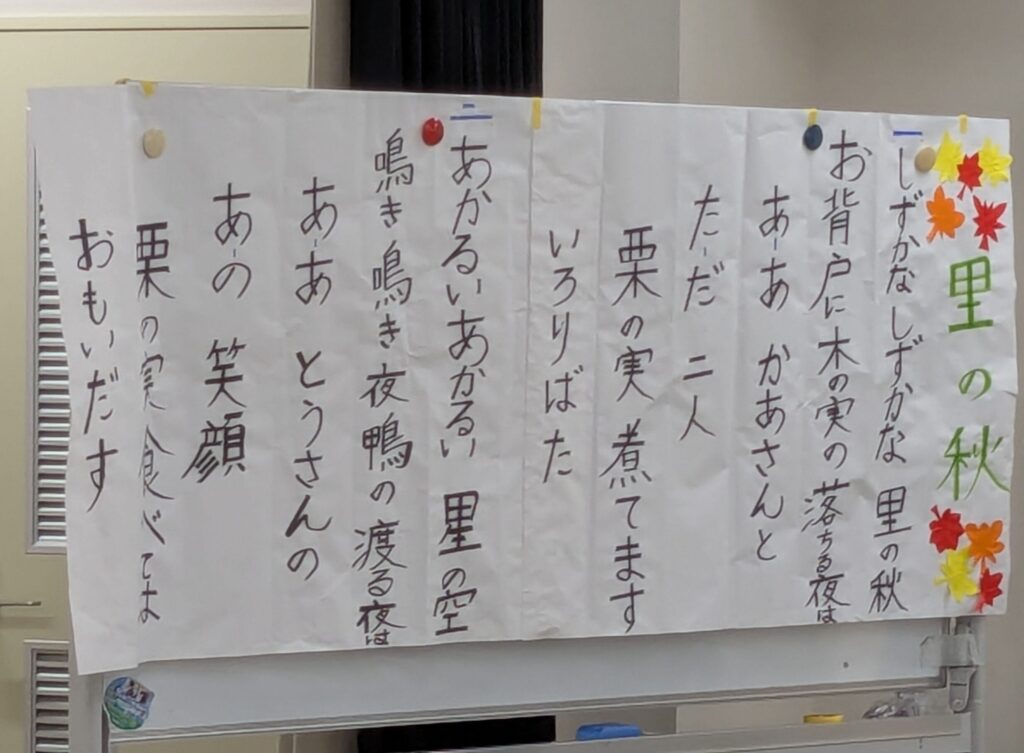 里の秋
一
しずかなしずかな 里の秋
お背戸に木の実の落ちる夜は
あーあ かあさんと
たーだ 二人
栗の実 煮てます
いろりばた
二
あかるいあかるい 星の空
鳴き鳴き夜鴨の渡る夜は
あーあ とうさんの
あーの 笑顔
栗の実食べては
おもいだす